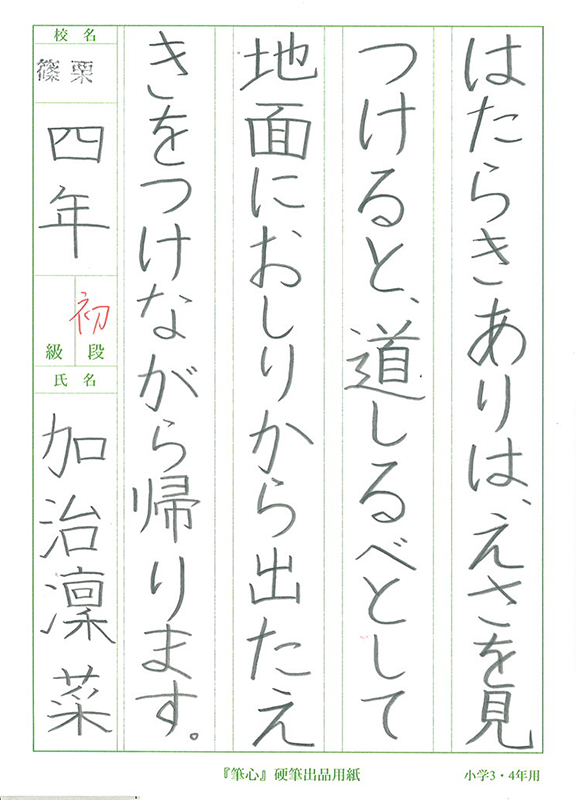 はたらきありは、えさを見
つけると、道しるべとして
地面におしりから出たえ
きをつけながら帰ります。
校名
篠栗
四年
初
級段
氏名
加治凜菜
『筆心』硬筆出品用紙
小学3・4年用